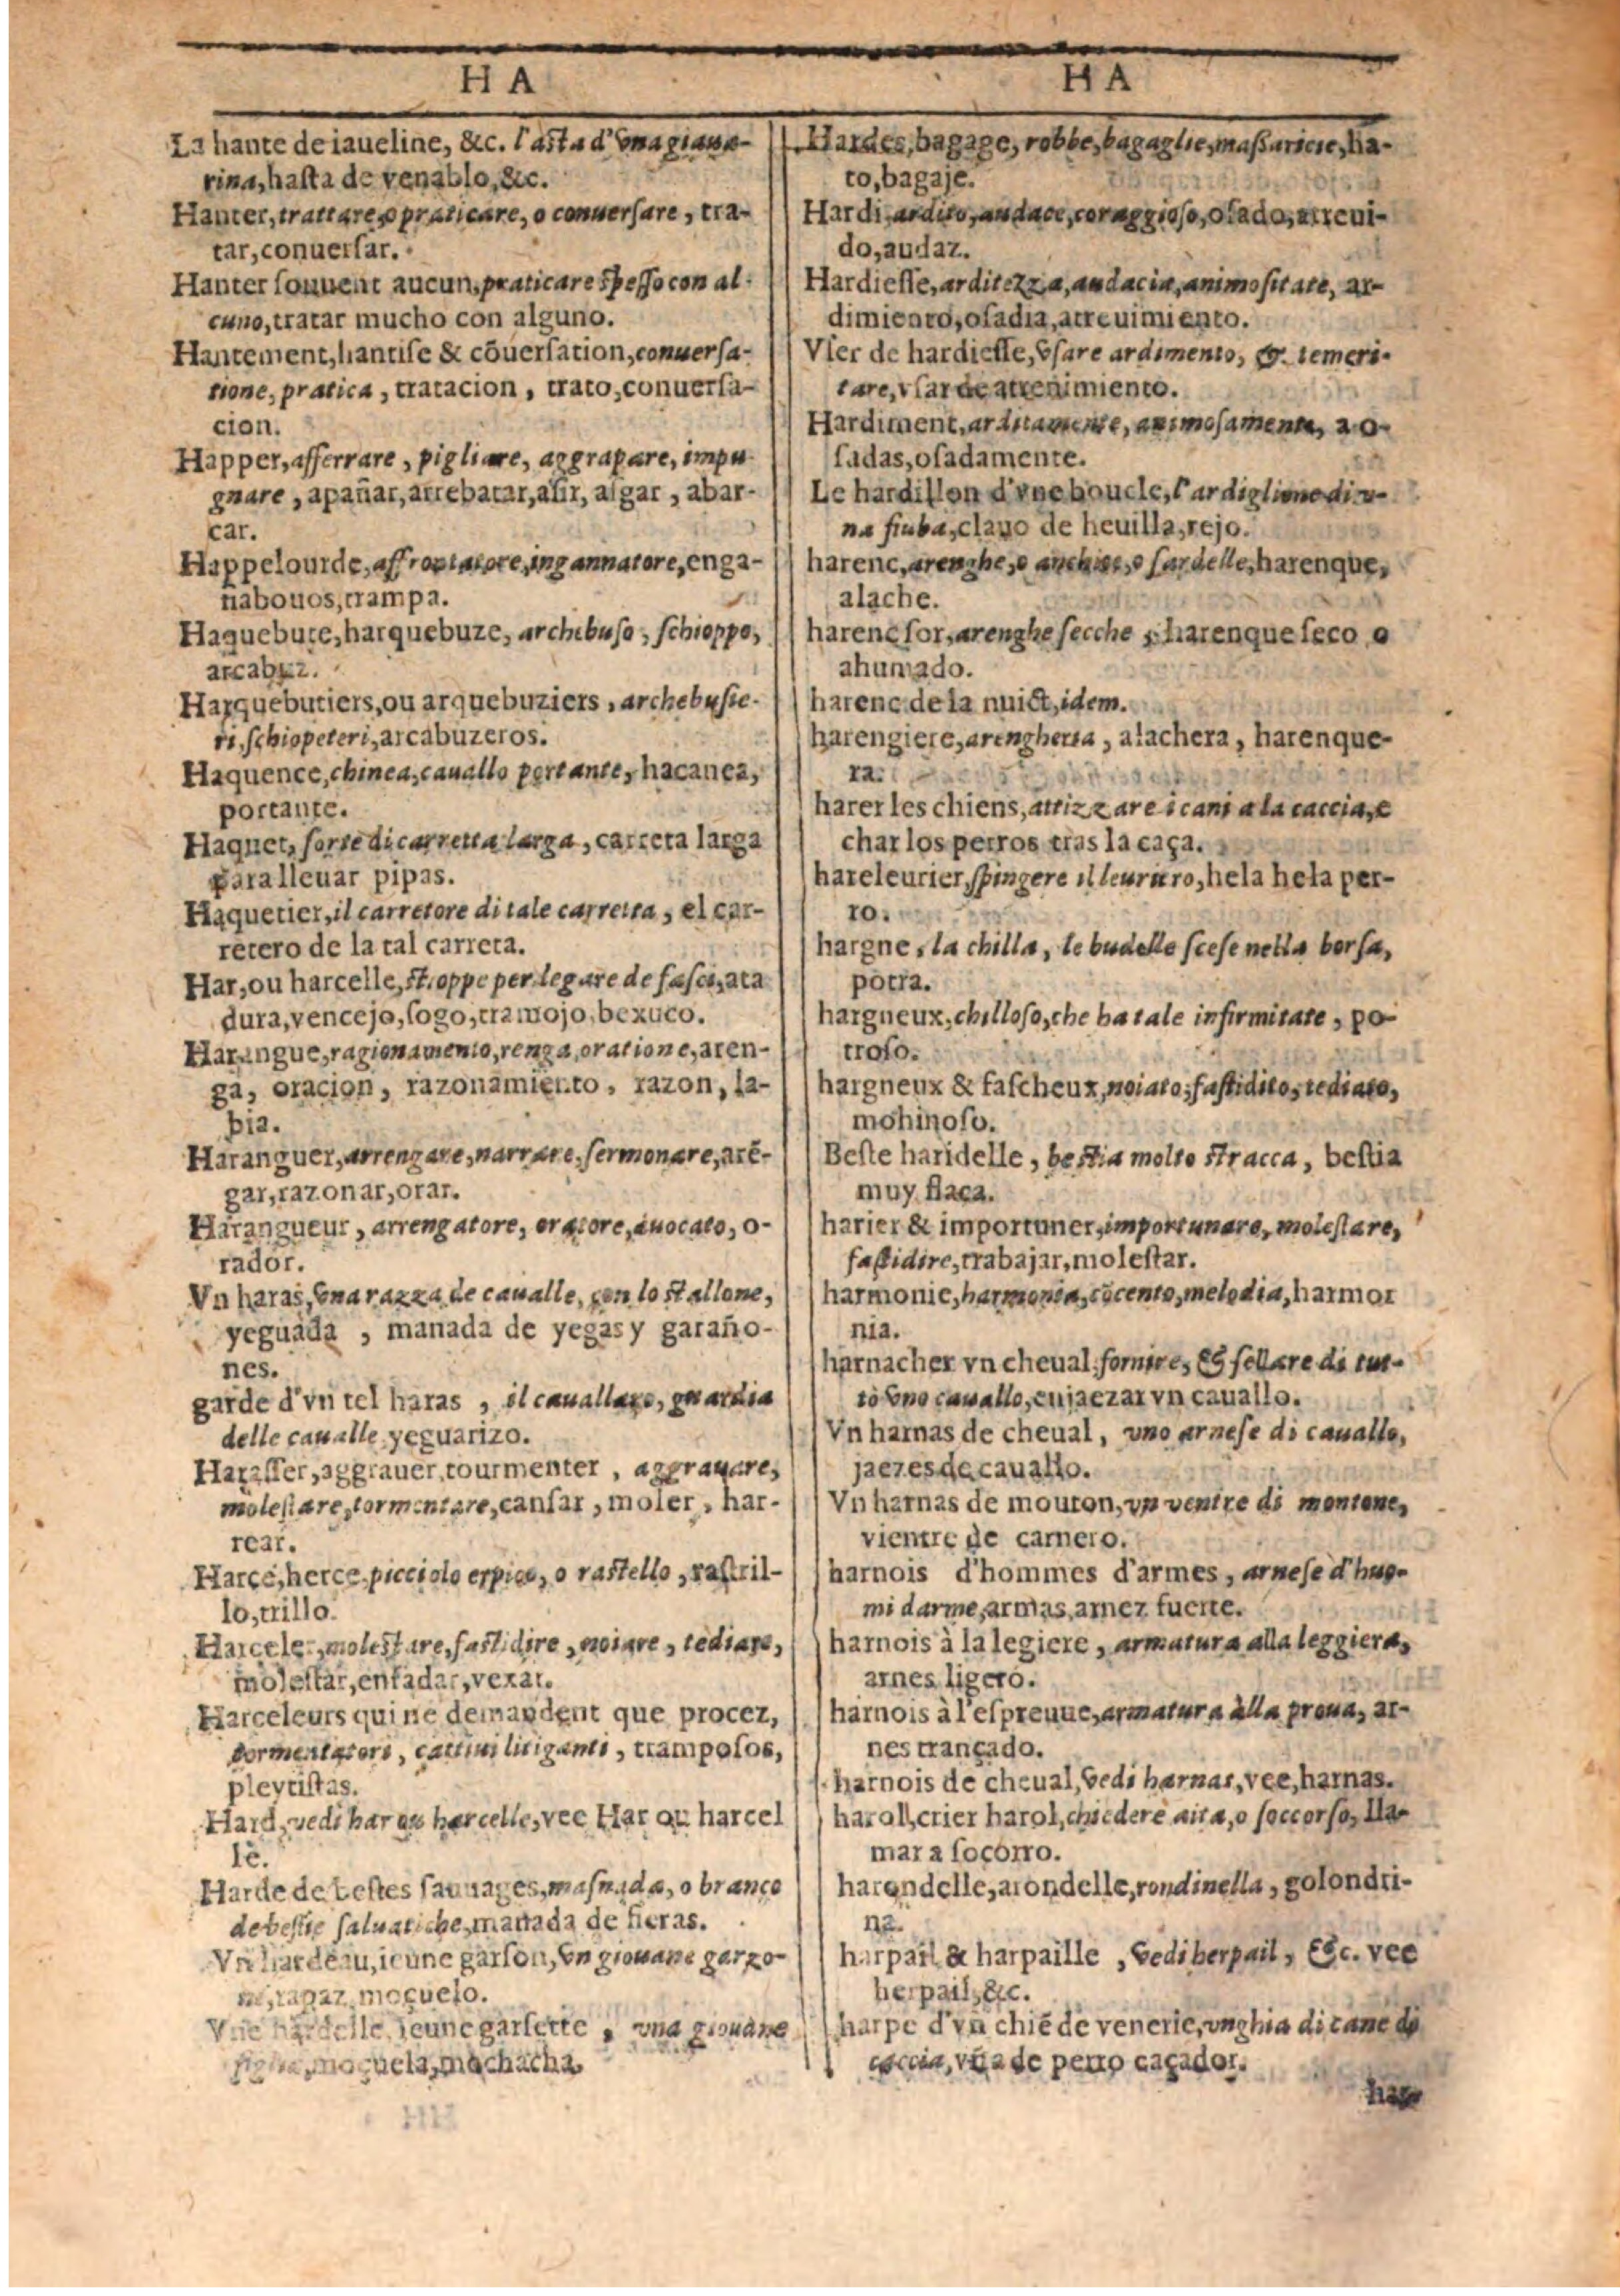 HA
La hante de iaueline, &c. l'asta d'vna giaue-
rina, hasta de venablo, &c.
Hanter, trattare, o praticare, o conuersare, tra-
tar, conuersar.
Hanter souuent aucun, praticare spesso con al-
cuno, tratar mucho con alguno.
Hantement, hantise & cõuersation, conuersa-
tione, pratica, tratacion, trato, conuersa-
cion.
Happer, afferrare, pigliare, aggrapare, impu-
gnare, apañar, arrebatar, asir, asgar, abar-
car.
Happelourde, affrontatore, ingannatore, enga-
ñabouos, trampa.
Haquebute, harquebuze, archibuso, schioppo,
arcabuz.
Harquebutiers, ou arquebuziers, archebusie-
ri, schiopeteri, arcabuzeros.
Haquence, chinea, cauallo portante, hacanea,
portante.
Haquet, sorte di carretta larga, carreta larga
para lleuar pipas.
Haquetier, il carretore di tale carretta, el car-
retero de la tal carreta.
Har, ou harcelle, stroppe per legare de fasci, ata
dura, vencejo, sogo, tramojo, bexuco.
Harangue, ragionamento, renga, oratione, aren-
ga, oracion, razonamiento, razon, la-
bia.
Haranguer, arrengare, narrare, sermonare, arẽ-
gar, razonar, orar.
Harangueur, arrengatore, oratore, auocato, o-
rador.
Vn haras, vna razza de caualle, con lo stallone,
yeguada, manada de yegas y garaño-
nes.
garde d'vn tel haras, il cauallaro, guardia
delle caualle, yeguarizo.
Harasser, aggrauer, tourmenter, aggrauare,
molestare, tormentare, cansar, moler, har-
rear.
Harce, herce, picciolo erpico, o rastello, rastril-
lo, trillo.
Harceler, molestare, fastidire, noiare, tediare,
molestar, enfadar, vexar.
Harceleurs qui ne demandent que procez,
tormentatori, cattiui litiganti, tramposos,
pleytistas.
Hard, vedi har ou harcelle, vee Har ou harcel
le.
Harde de bestes sauuages, masnada, o branco
de bestie saluatiche, manada de fieras.
Vn hardeau, ieune garson, vn giouane garzo-
ne, rapaz, moçuelo.
Vne hardelle, ieune garsette, vna giouane
figlia, moçuela, mochacha.
HA
Hardes, bagage, robbe, bagaglie, massaricie, ha-
to, bagaje.
Hardi, ardito, audace, coraggioso, osado, atreui-
do, audaz.
Hardiesse, arditezza, audacia, animositate, ar-
dimiento, osadia, atreuimiento.
Vser de hardiesse, vsare ardimento, & temeri-
tate, vsar de atreuimiento.
Hardiment, arditamente, animosamente, a o-
sadas, osadamente.
Le hardillon d'vne boucle, l'ardiglione di v-
na fiuba, clauo de heuilla, rejo.
harenc, arenghe, o anchioe, o sardelle, harenque,
alache.
harenc sor, arenghe secche, harenque seco o
ahumado.
harenc de la nuict, idem.
harengiere, arengheria, alachera, harenque-
ra.
harer les chiens, attizzare i cani a la caccia, e
char los perros tras la caça.
hareleurier, spingere il leuriero, hela hela per-
ro.
hargne, la chilla, le budelle scese nella borsa,
potra.
hargneux, chilloso, che ha tale infirmitate, po-
troso.
hargneux & fascheux, noiato, fastidito, tediato,
mohinoso.
Beste haridelle, bestia molto stracca, bestia
muy flaca.
harier & importuner, importunare, molestare,
fastidire, trabajar, molestar.
harmonie, harmonia, cõcento, melodia, harmor
nia.
harnacher vn cheual, fornire, & sellare di tut-
to vno cauallo, enjaezar vn cauallo.
Vn harnas de cheual, vno arnese di cauallo,
jaezes de cauallo.
Vn harnas de mouton, vn ventre di montone,
vientre de carnero.
harnois d'hommes d'armes, arnese d'huo-
mi darme, armas, arnez fuerte.
harnois à la legiere, armatura alla leggiera,
arnes ligero.
harnois à l'espreuue, armatura àlla proua, ar-
nes trançado.
harnois de cheual, vedi harnas, vee, harnas.
haroll, crier harol, chiedere aita, o soccorso, lla-
mar a socorro.
harondelle, arondelle, rondinella, golondri-
na.
harpail & harpaille, vedi herpail, &c. vee
herpail, &c.
harpe d'vn chiẽ de venerie, vnghia di cane di
caccia, vña de perro caçador.
har-